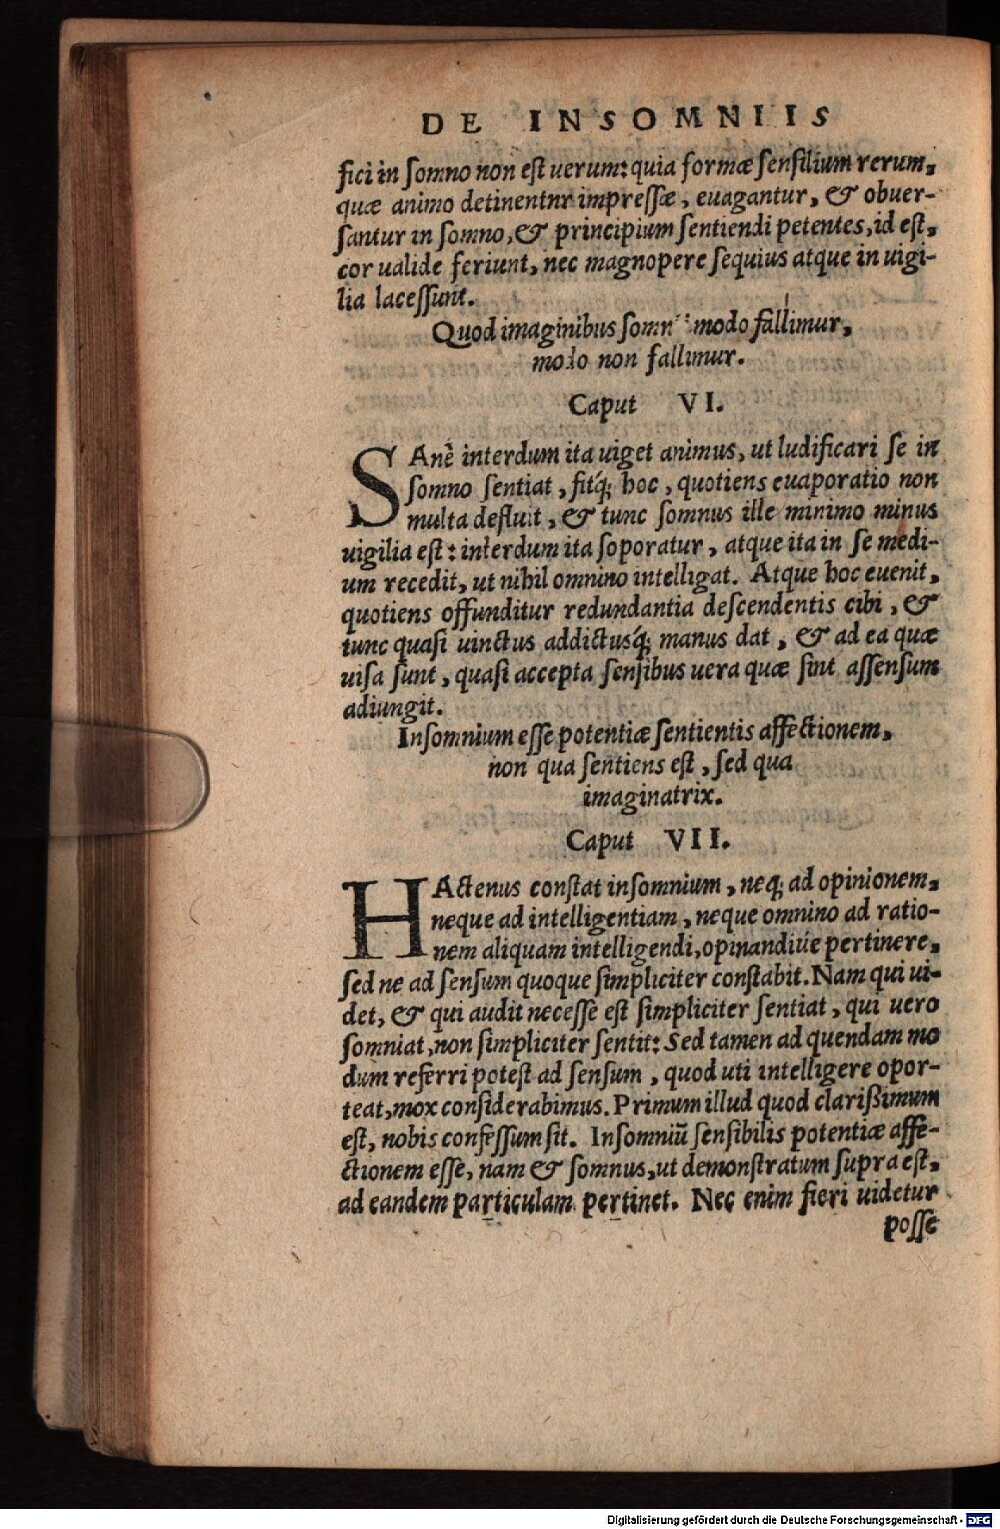 DE INSOMNIIS
fici in somno non est uerum: quia formæ sensilium rerum,
quæ animo detinentnr impressæ, euagantur, & obuer-
santur in somno, & principium sentiendi petentes, id est,
cor ualide feriunt, nec magnopere sequius atque in uigi-
lia lacessunt.
Quod imaginibus modo fallimur,
modo non fallimur.
Caput VI.
SAnè interdum ita uiget animus, ut ludificari se in
somno sentiat, fitq́; hoc, quotiens euaporatio non
multa defluit, & tunc somnus ille minimo minus
uigilia est: interdum ita soporatur, atque ita in se medi-
um recedit, ut nihil omnino intelligat. Atque hoc euenit,
quotiens offunditur redundantia descendentis cibi, &
tunc quasi uinctus addictusq́; manus dat, & ad ea quæ
uisa sunt, quasi accepta sensibus uera quæ sint assensum
adiungit.
Insomnium esse potentiæ sentientis affectionem,
non qua sentiens est, sed qua
imaginatrix.
Caput VII.
HActenus constat insomnium, neq; ad opinionem,
neque ad intelligentiam, neque omnino ad ratio-
nem aliquam intelligendi, opinandiúe pertinere,
sed ne ad sensum quoque simpliciter constabit. Nam qui ui-
det, & qui audit necesse est simpliciter sentiat, qui uero
somniat, non simpliciter sentit: Sed tamen ad quendam mo
dum referri potest ad sensum, quod uti intelligere opor-
teat, mox considerabimus. Primum illud quod clarißimum
est, nobis confessum sit. Insomniũ sensibilis potentiæ affe-
ctionem esse, nam & somnus, ut demonstratum supra est,
ad eandem particulam pertinet. Nec enim fieri uidetur
posse
Digitalisierung gefördert durch die Deutsche Forschungsgemeinschaft - DFG